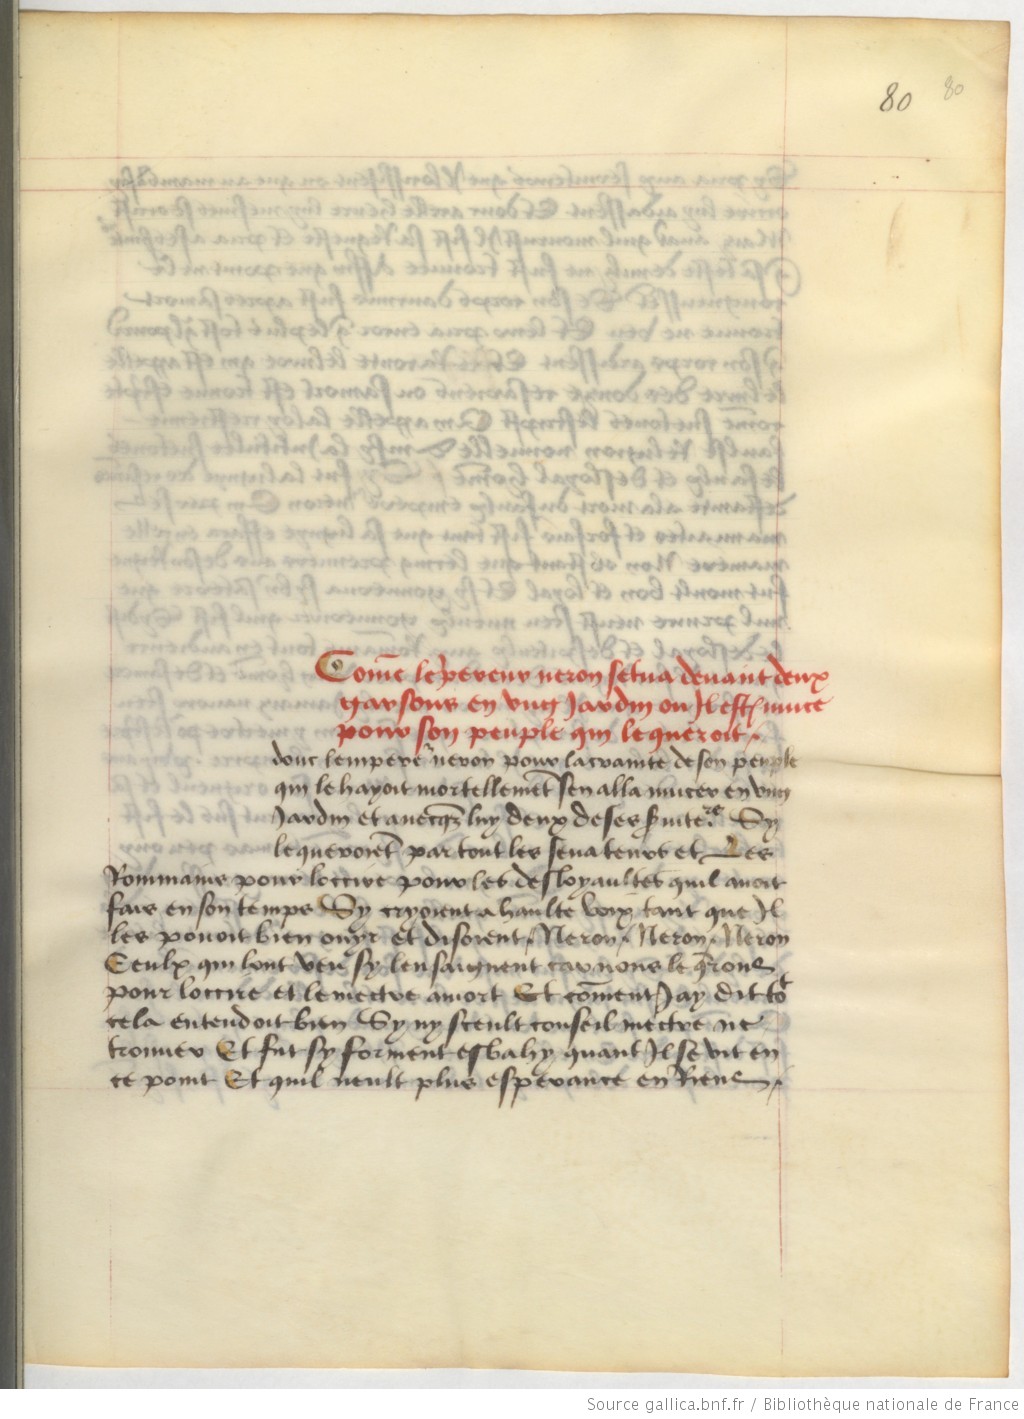 80 80
Com̃e lẽpereur neron se tua deuant deux
garsons en vng Jardin ou Il est muce
pour son peuple qui le queroit.
donc lempere᷑ neron pour la crainte de son peuple
qui le hayoit mortellemẽt sen alla mucer en vng
Jardin et auecqz luy deux de ses s̃uite᷑s Sy
le queroiẽt par tout les senateurs et Les
Rommains pour loccire pour les desloyaultes quil auoit
fais en son temps Sy cryoient a haulte voix tant que Il
les pouoit bien ouyr et disoient / Neron / Neron / Neron
Ceulx qui lont veu sy lensaignent car nous le q̃rons
pour loccire et le mectre a mort Et com̃ent Jay dit to᷑t
cela entendoit bien Sy ny sceult conseil mectre ne
trouuer Et fut sy forment esbahy quant Il se vit en
ce point Et quil neult plus esperance en Riens /
Source gallica.bnf.fr / Bibliothèque nationale de France